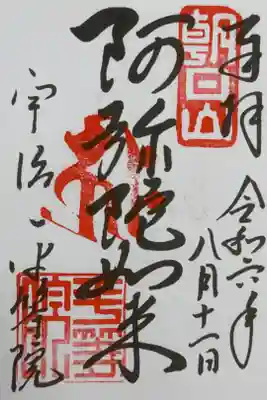 奉拝
令和六年
八月十一日
朝日山
阿弥陀如来
宇治
平等院